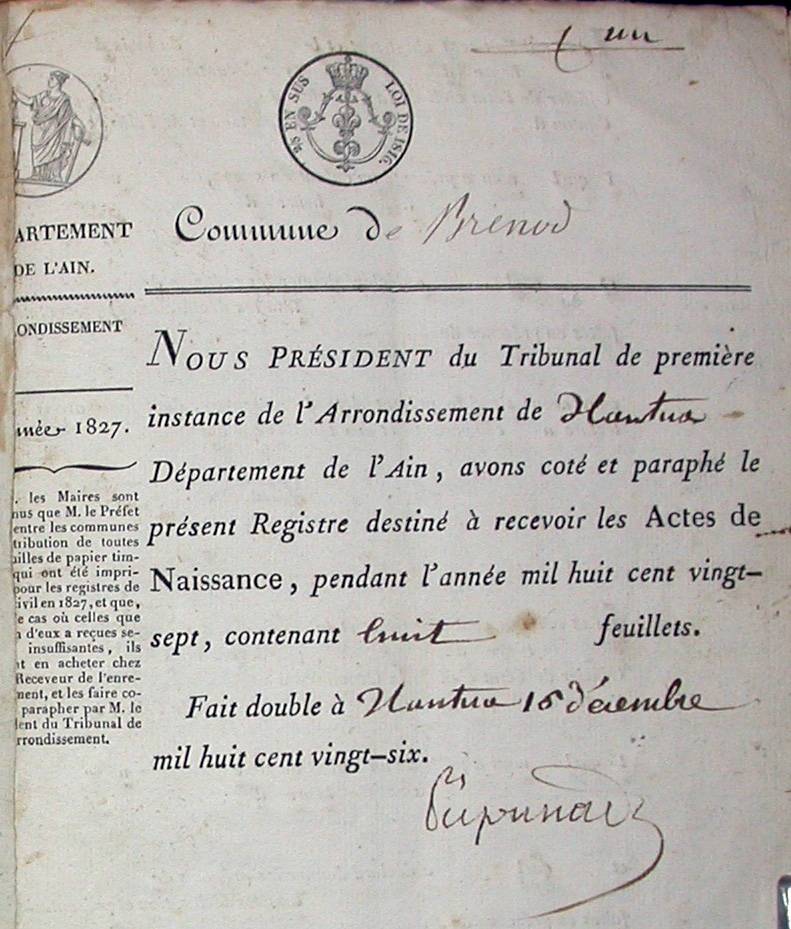 un
25 EN SUS LOI DE 1816.
ARTEMENT
DE L'AIN.
ONDISSEMENT
nnée 1827.
. les Maires sont
nus que M. le Préfet
entre les communes
tribution de toutes
illes de papier tim-
qui ont été impri-
pour les registres de
ivil en 1827, et que,
e cas où celles que
n d'eux a reçues se-
insuffisantes, ils
nt en acheter chez
Receveur de l'enre-
nent, et les faire co-
parapher par M. le
dent du Tribunal de
rrondissement.
Commune de Brénod
NOUS PRÉSIDENT du Tribunal de première
instance de l'Arrondissement de Nantua
Département de l'Ain, avons coté et paraphé le
présent Registre destiné à recevoir les Actes de
Naissance, pendant l'année mil huit cent vingt-
sept, contenant huit feuillets.
Fait double à Nantua 15 décembre
mil huit cent vingt-six.